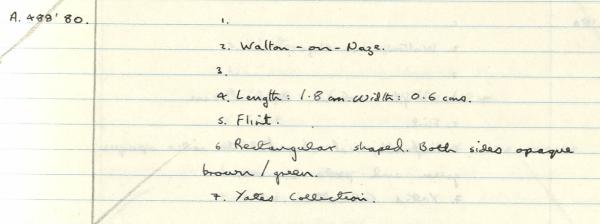 A. 499' 80.
1.
2. Walton-on-Naze.
3.
4. Length: 1.8 cm. Width: 0.6 cms.
5. Flint.
6 Rectangular shaped. Both sides opaque
brown/green.
7. Yates Collection.